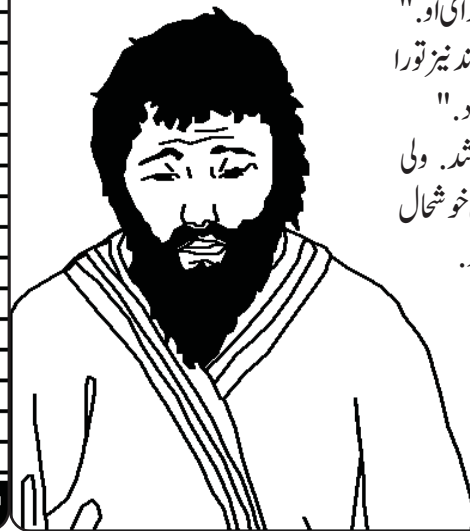 ای او."
ند نیز تو را
د."
شد. ولی
خوشحال
.